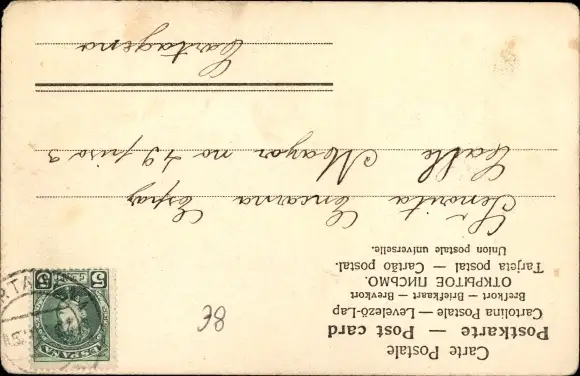 Carte Postale
Postkarte — Post card
Cartolina Postale — Levelező-Lap
Brefkort — Briefkaart — Brevkort
ОТКРЫТОЕ ПИСЬМО.
Tarjeta postal — Cartão postal.
Union postale universelle.
38
ESPAÑA
5 5
Señorita Encarna Espar
Calle Mayor no 49 piso 3
Cartagena